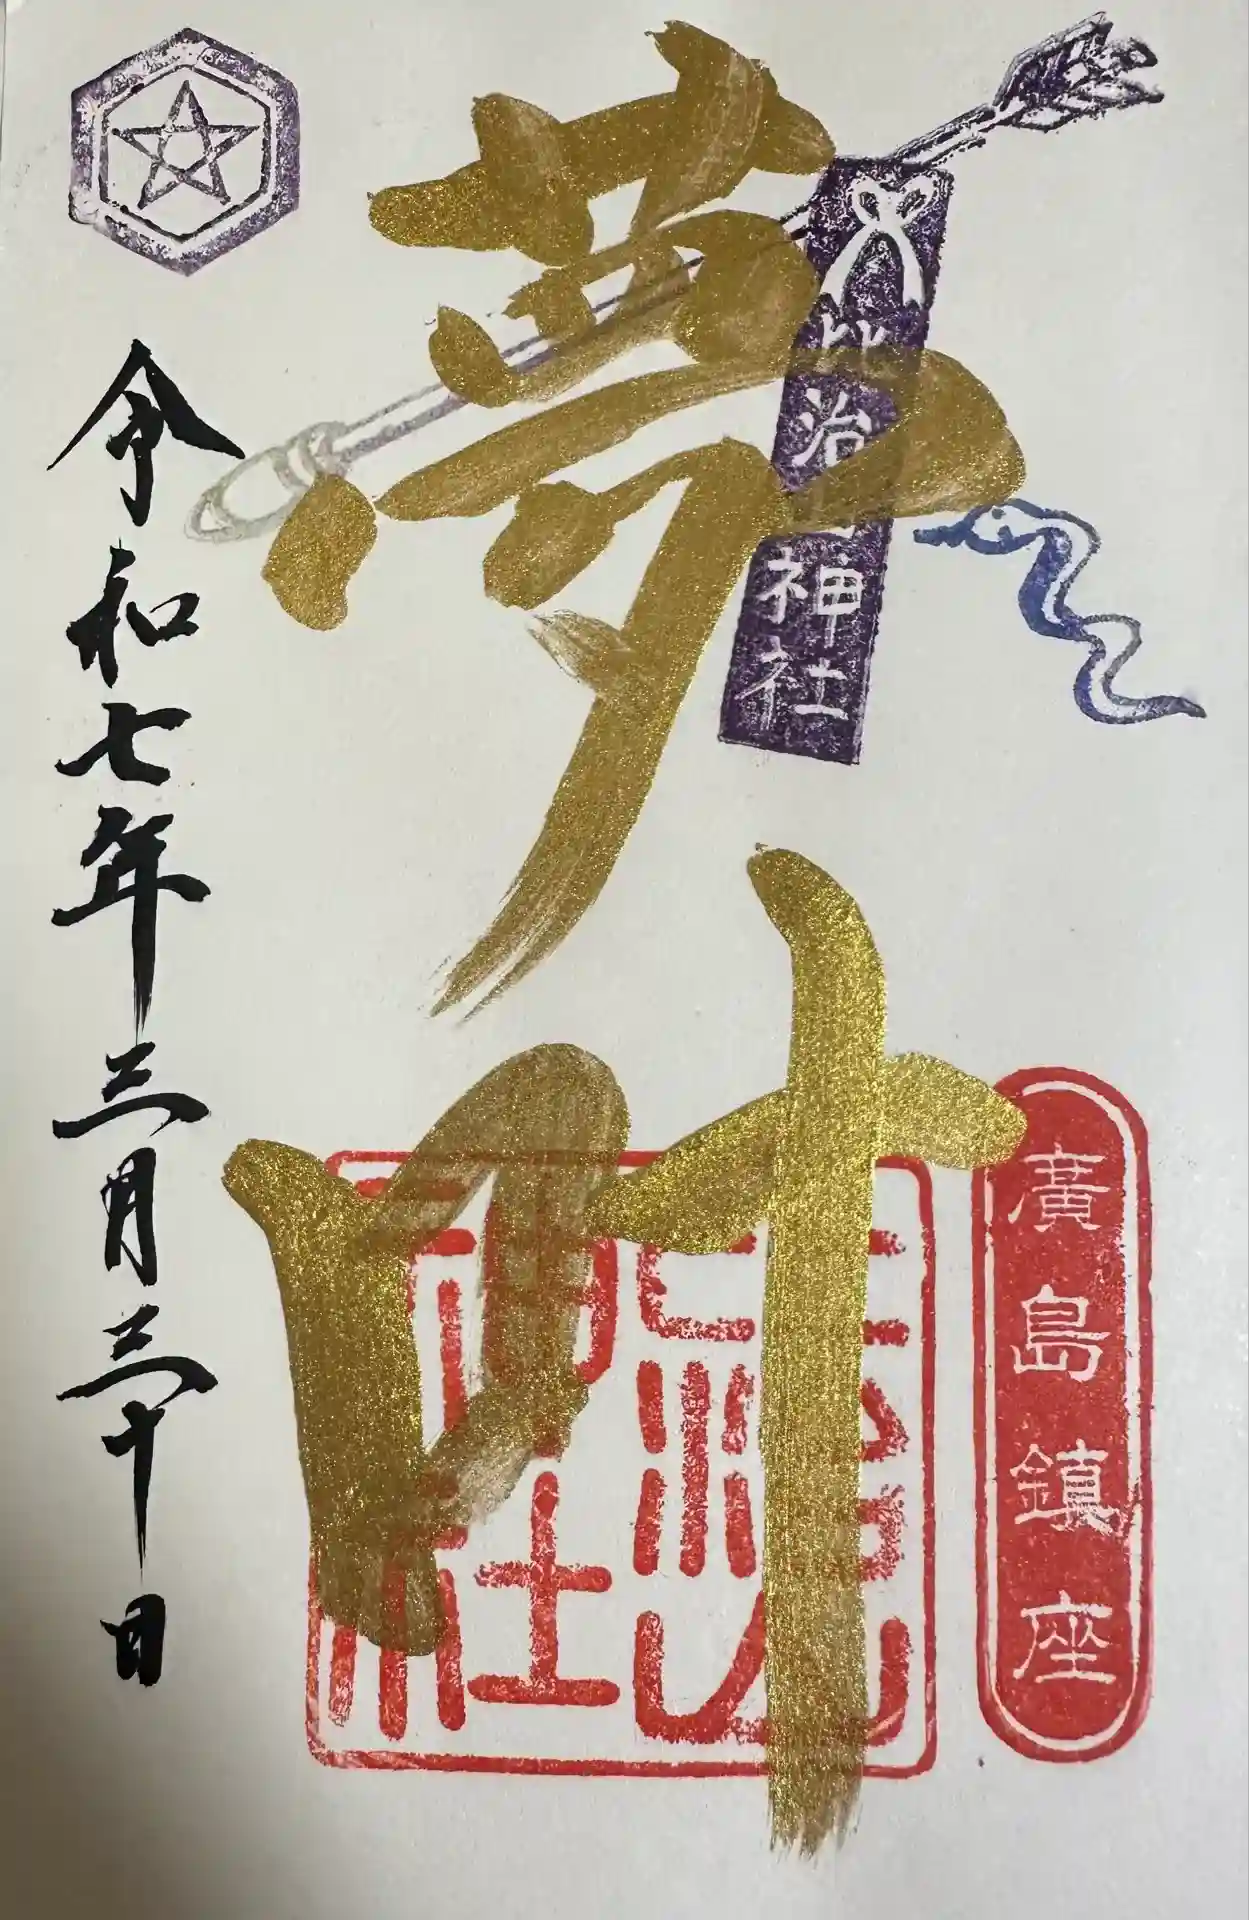 廣島鎮座
比治山神社
夢叶
令和七年三月三十日